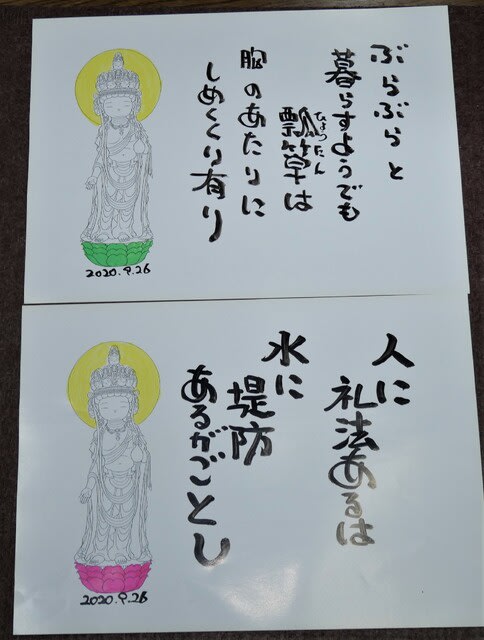 ぶらぶらと
暮らすようでも
瓢箪は
ひょうたん
胸のあたりに
しめくくり有り
2020.9.26
人に
礼法あるは
水に
堤防
あるがごとし
2020.9.26